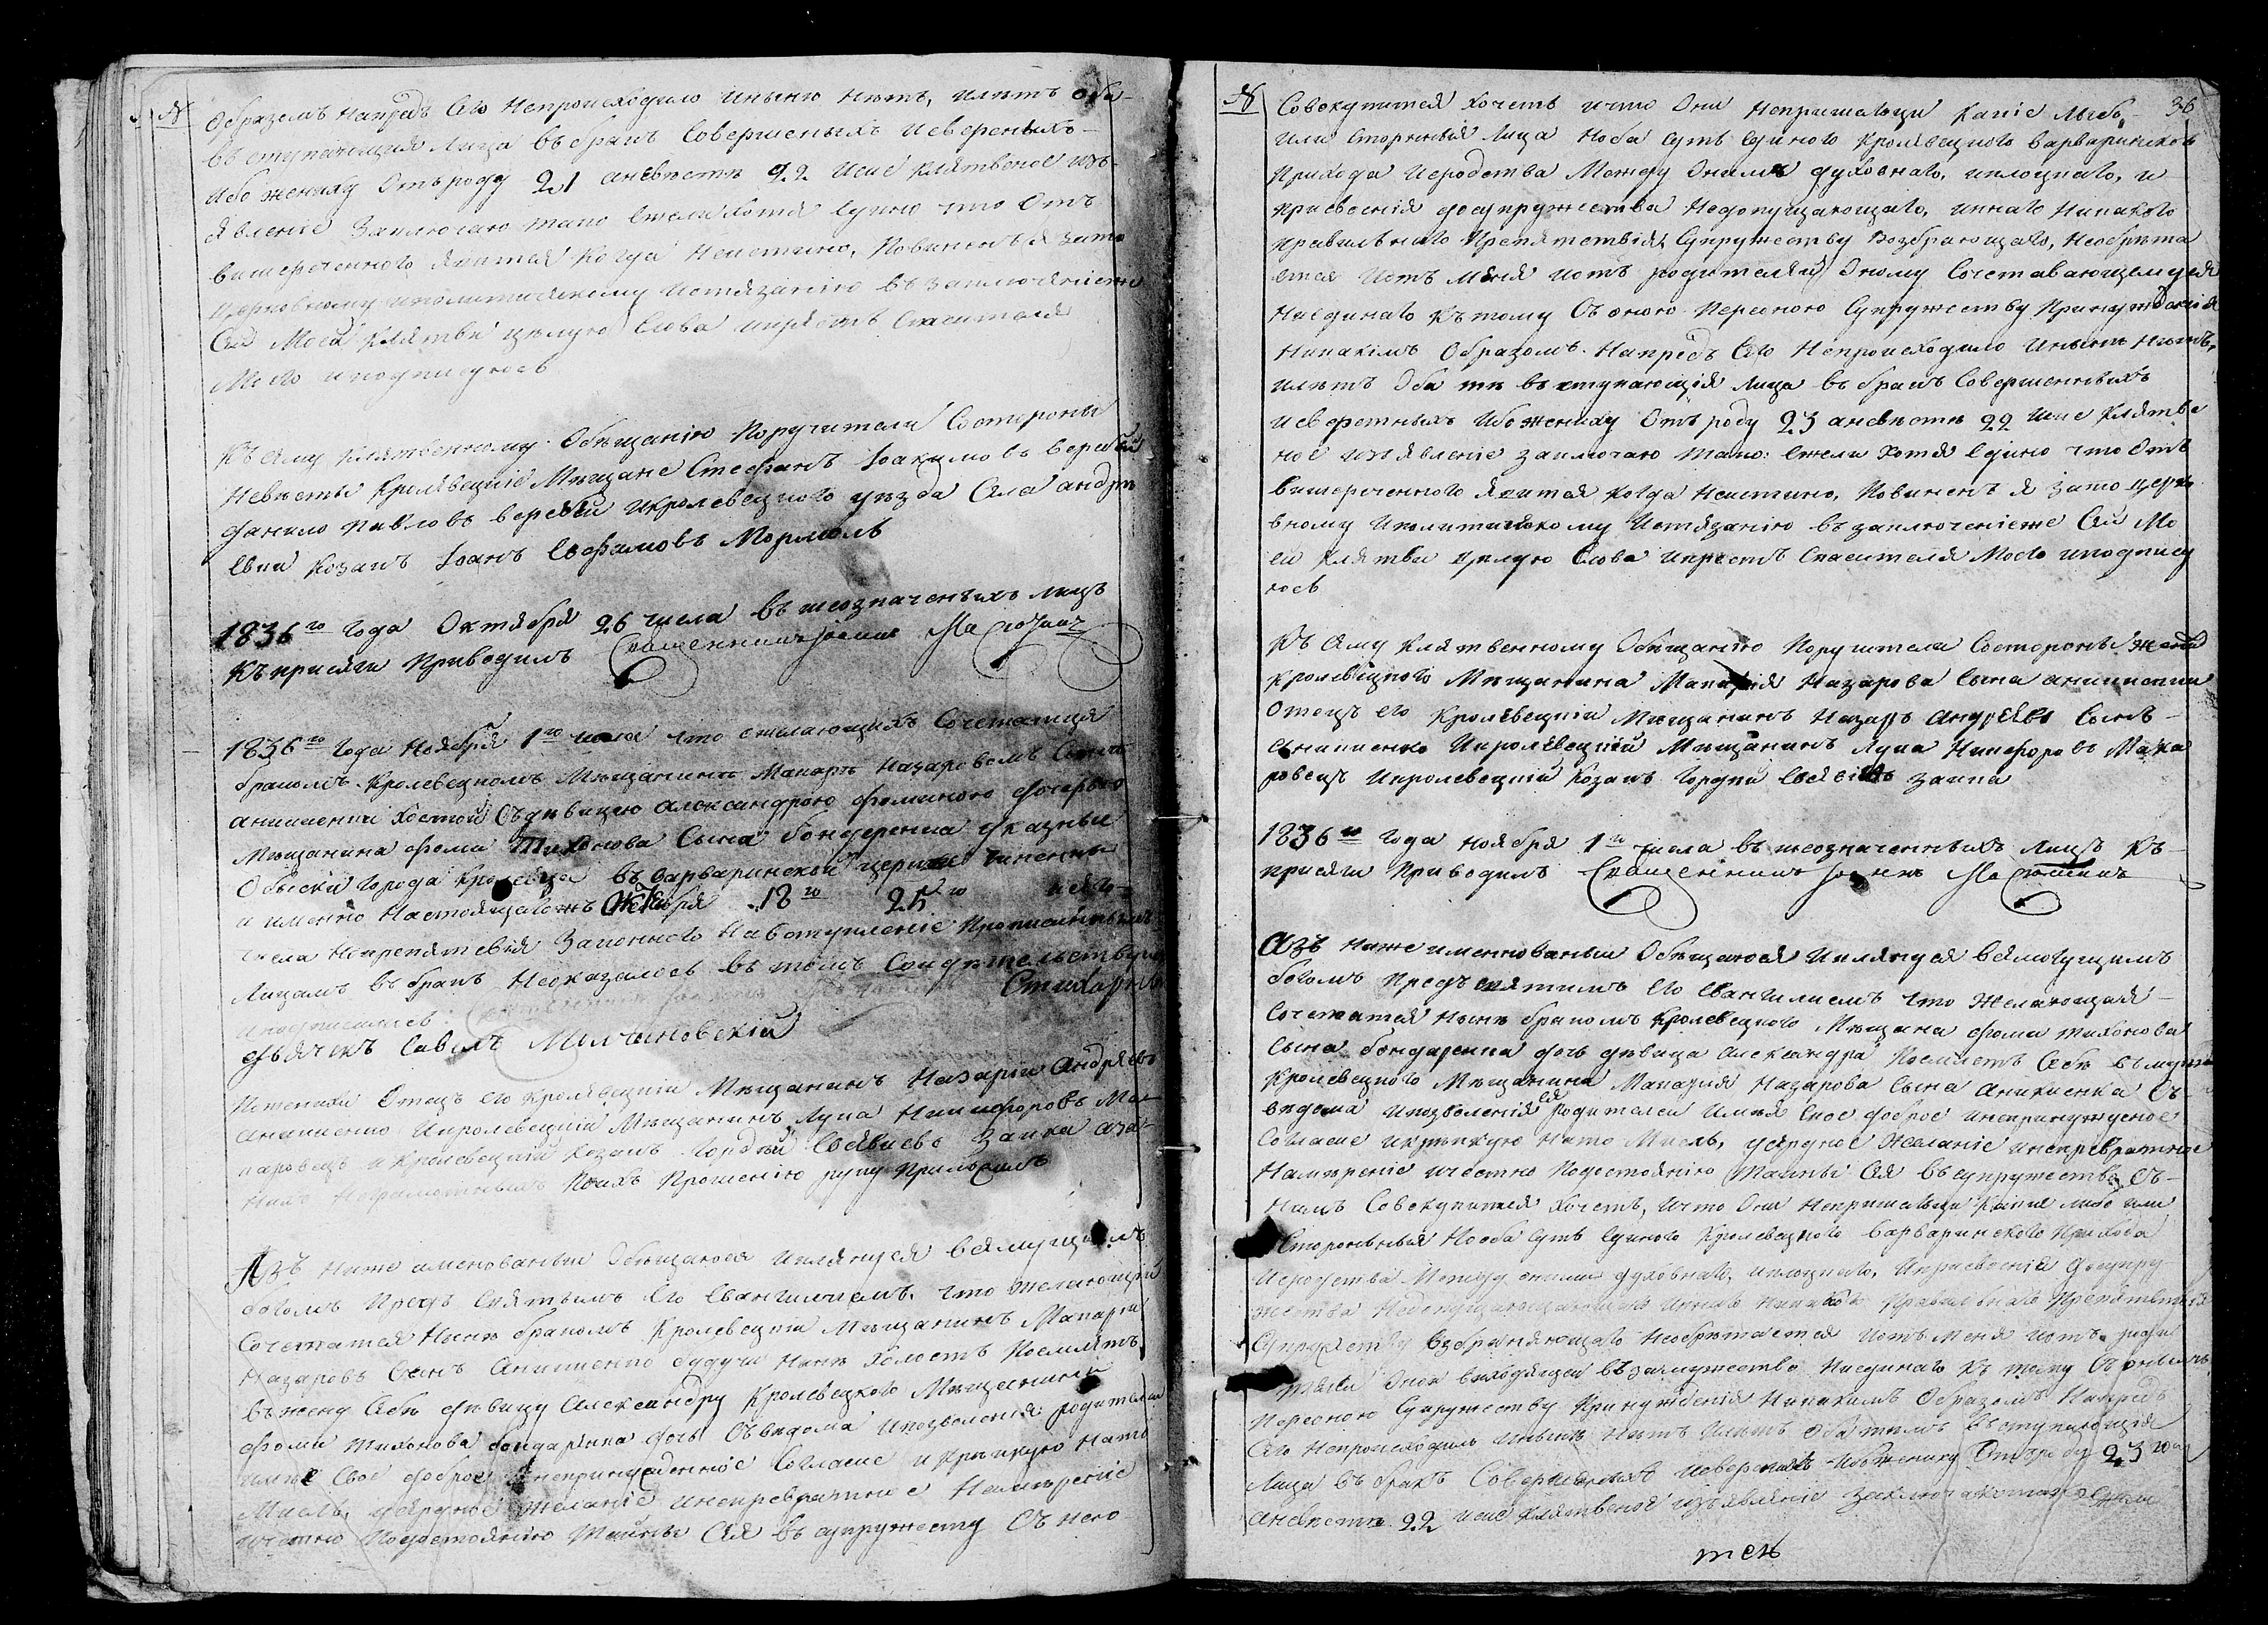 №
образомъ напредъ сего непроисходило иныню нетъ, илетъ оба
вступающия лица вбракъ совершеныхъ иевереныхъ
ибо жениху отъ роду 21 аневести 22 исие клятвеное изъ-
явление заключаю тако ежели хотя едино что отъ
вишереченного явится когда неистино, повиненъ я зато
церковному иполитическому истязанию взаключениеже
сей моей клятви целую слова икрестъ спасителя
моего иподписуюсь
Ксему клятвенному обещанию поручители состороны
невести кролевецкие мещане Стефанъ Иоакимовъ Веребей
Данило Павловъ Веребей икролевецкого уезда села Андре
евки козакъ Иоанъ Ефимовъ
1836го года октября 26 числа вишеозначеныхъ лицъ
къприсяги приводилъ священникъ Иоаннъ
1836го года ноября 1го числа что желающихъ сочетатися
бракомъ кролевецкомъ мещанинъ Макаръ Назаровомъ сыномъ
холостой съдевицею Александрою Фоминою дочерью
мещанина Фоми Тихонова сына Бондаренка указныи
обыски города Кролевца въ Варваринской церкви чинении
а именно настоящагожъ октября 18го 25го
числа ипрепятсвия законного навступление прописаннымъ
лицамъ вбракъ неоказалось втомъ свидетельствуемъ
иподписались: Стихарный
дьячекъ Савелъ Молчановский
Поженихи отецъ его кролевецкий мещанинъ Назарий Андреевъ
Аникиенко икролевецкий мещанинъ Лука Никифоровъ Ма-
каровецъ и кролевецкий козакъ Гордей Евсевиевъ Заика аза
нихъ неграмотныхъ поихъ прошению руку приложилъ
Азъ ниже именованый обещаюся иклянуся всемогущимъ
богомъ предъ святымъ его евангилиемъ, что желающий
сочетатся нине бракомъ кролевецкий мещанинъ Макарий
Назаровъ сынъ Аникиенко будучи нине холостъ поемлетъ
въжену себе девицу Александру кролевецкого мещанина
Фоми Тихонова Бондаренка дочъ съведома ипозволения родителей
имея свое доброе инепринужденное согласие и крепкую нато
мисль, усердное желание инепревратное намерение
ичестно подостоянию тайны сея въсупружеству съ нею
№ 36
совокупится хочетъ ичто они непришельци какие либо
или сторонныя лица но оба суть едного кролевецкого Варваринского
прихода иеродства между онимъ духовнаго, иплоцкаго, и
присвоения досупружества недопущающаго, иннаго никакого
правильнаго препятствия супружеству возбраняющаго, необрета
ется иотъ меня иотъ родителей оному сочетавающемуся
наединаго ктому съ оною персоною супружеству принуждения
никакимъ образомъ напредъ сего непроисходило иныне нетъ,
илетъ оба те вступающия лица вбракъ совершенныхъ
иевереныхъ ибо жениху отъ роду 23 аневести 22 исие клятве
ное изъявление заключаю тако: ежели хотя едино что отъ
вишереченного явится когда неистино, повиненъ я зато церко
вному иполитическому истязанию взаключениеже сей мо
ей клятви целую слова икрестъ спасителя моего иподпису
юсь
Ксему клятвенному обещанию поручители состороны жениха
кролевецкого мещанина Макария Назарова сына Аникиенки
отецъ его кролевецкий мещанинъ Назаръ Андреевъ сынъ
Аникиенко икролевецкий мещанинъ Лука Никифоровъ Мака
ровецъ икролевецкий козакъ Гордей Евсевиевъ Заика
1836го года ноября 1го числа вишеозначенныхъ лицъ къ
присяги приводилъ священникъ Иоаннъ
Азъ ниже именованыи обещаюся иклянуся всемогущимъ
богомъ предъ святимъ его евангилиемъ что желающая
сочетатся нине бракомъ кролевецкого мещанина Фоми Тихонова
сына Бондаренка дочъ девица Александра поемлетъ себе вмужа
кролевецкого мещанина Макария Назарова сына Аникиенка съ
ведома ипозволения ея родителей имея свое доброе инепринужденое
согласие икрепкую нато мисль, усердное желание инепревратное
намерение ичестно подостоянию тайны сея всупружество съ
нимъ совокупится хочетъ, ичто они непришельци какие либо или
сторонныя но оба суть едного кролевецкого Варваринского прихода
иеродства между оними духовнаго, иплоцкаго, иприсвоения досупру
жества недопущающаго иннаго никакого правильного препятствия
супружеству возбраняющаго необретается иотъ меня иотъ роди
телей оной виходящей въ замужество наединаго къ тому съ онымъ
персоною супружеству принуждения никакимъ образомъ напредъ
сего непроисходило иныне нетъ илетъ оба темъ вступающия
лица въ бракъ совершенныхъ иевереныхъ ибо жениху отъ роду 23 года
аневести 22 исие клятвеное изъявление заключаю тако ежели